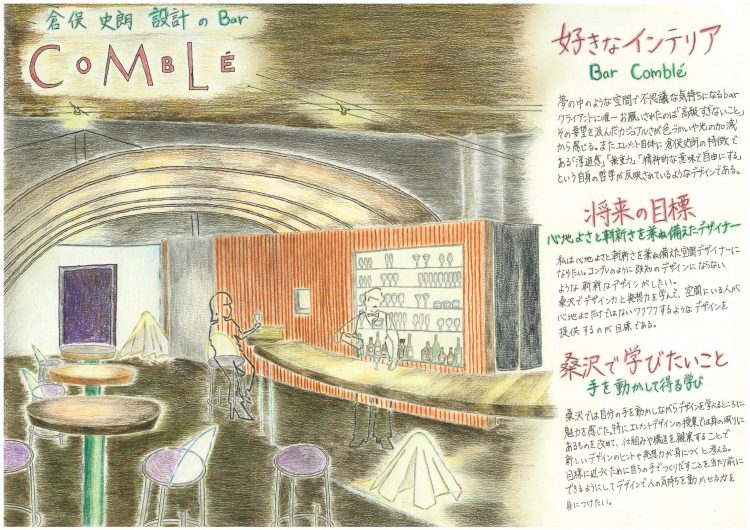 倉俣 史朗 設計 の Bar
CoMBLÉ
好きなインテリア
Bar Comblé
夢の中のような空間で不思議な気持ちになるbar
クライアントに唯一お願いされたのは「高級すぎないこと」
その要望を汲んだカジュアルさが色づかいや光の加減
から感じる。またエレメント自体に倉俣史朗の特徴で
ある「浮遊感」「無重力」「精神的な意味で自由にする」
という自身の哲学が反映されているようなデザインである。
将来の目標
心地よさと斬新さを兼ね備えたデザイナー
私は心地よさと斬新さを兼ね備えた空間デザイナーに
なりたい。コンブレのように既知のデザインにならない
ような斬新なデザインがしたい。
桑沢でデザイン力と発想力を学んで、空間にいる人が
心地よだけではないワクワクするようなデザインを
提供するのが目標である。
桑沢で学びたいこと
手を動かして得る学び
桑沢では自分の手を動かしながらデザインを学べるところに
魅力を感じた。特にエレメントデザインの授業では身の周りに
あるものを改めて、仕組みや構造を観察することで
新しいデザインのヒントや発想力が身につくと考える。
目標に近づくために自らの手でつくりだすことを当たり前に
できるようにしてデザインで人の気持ちを動かせる力を
身につけたい。